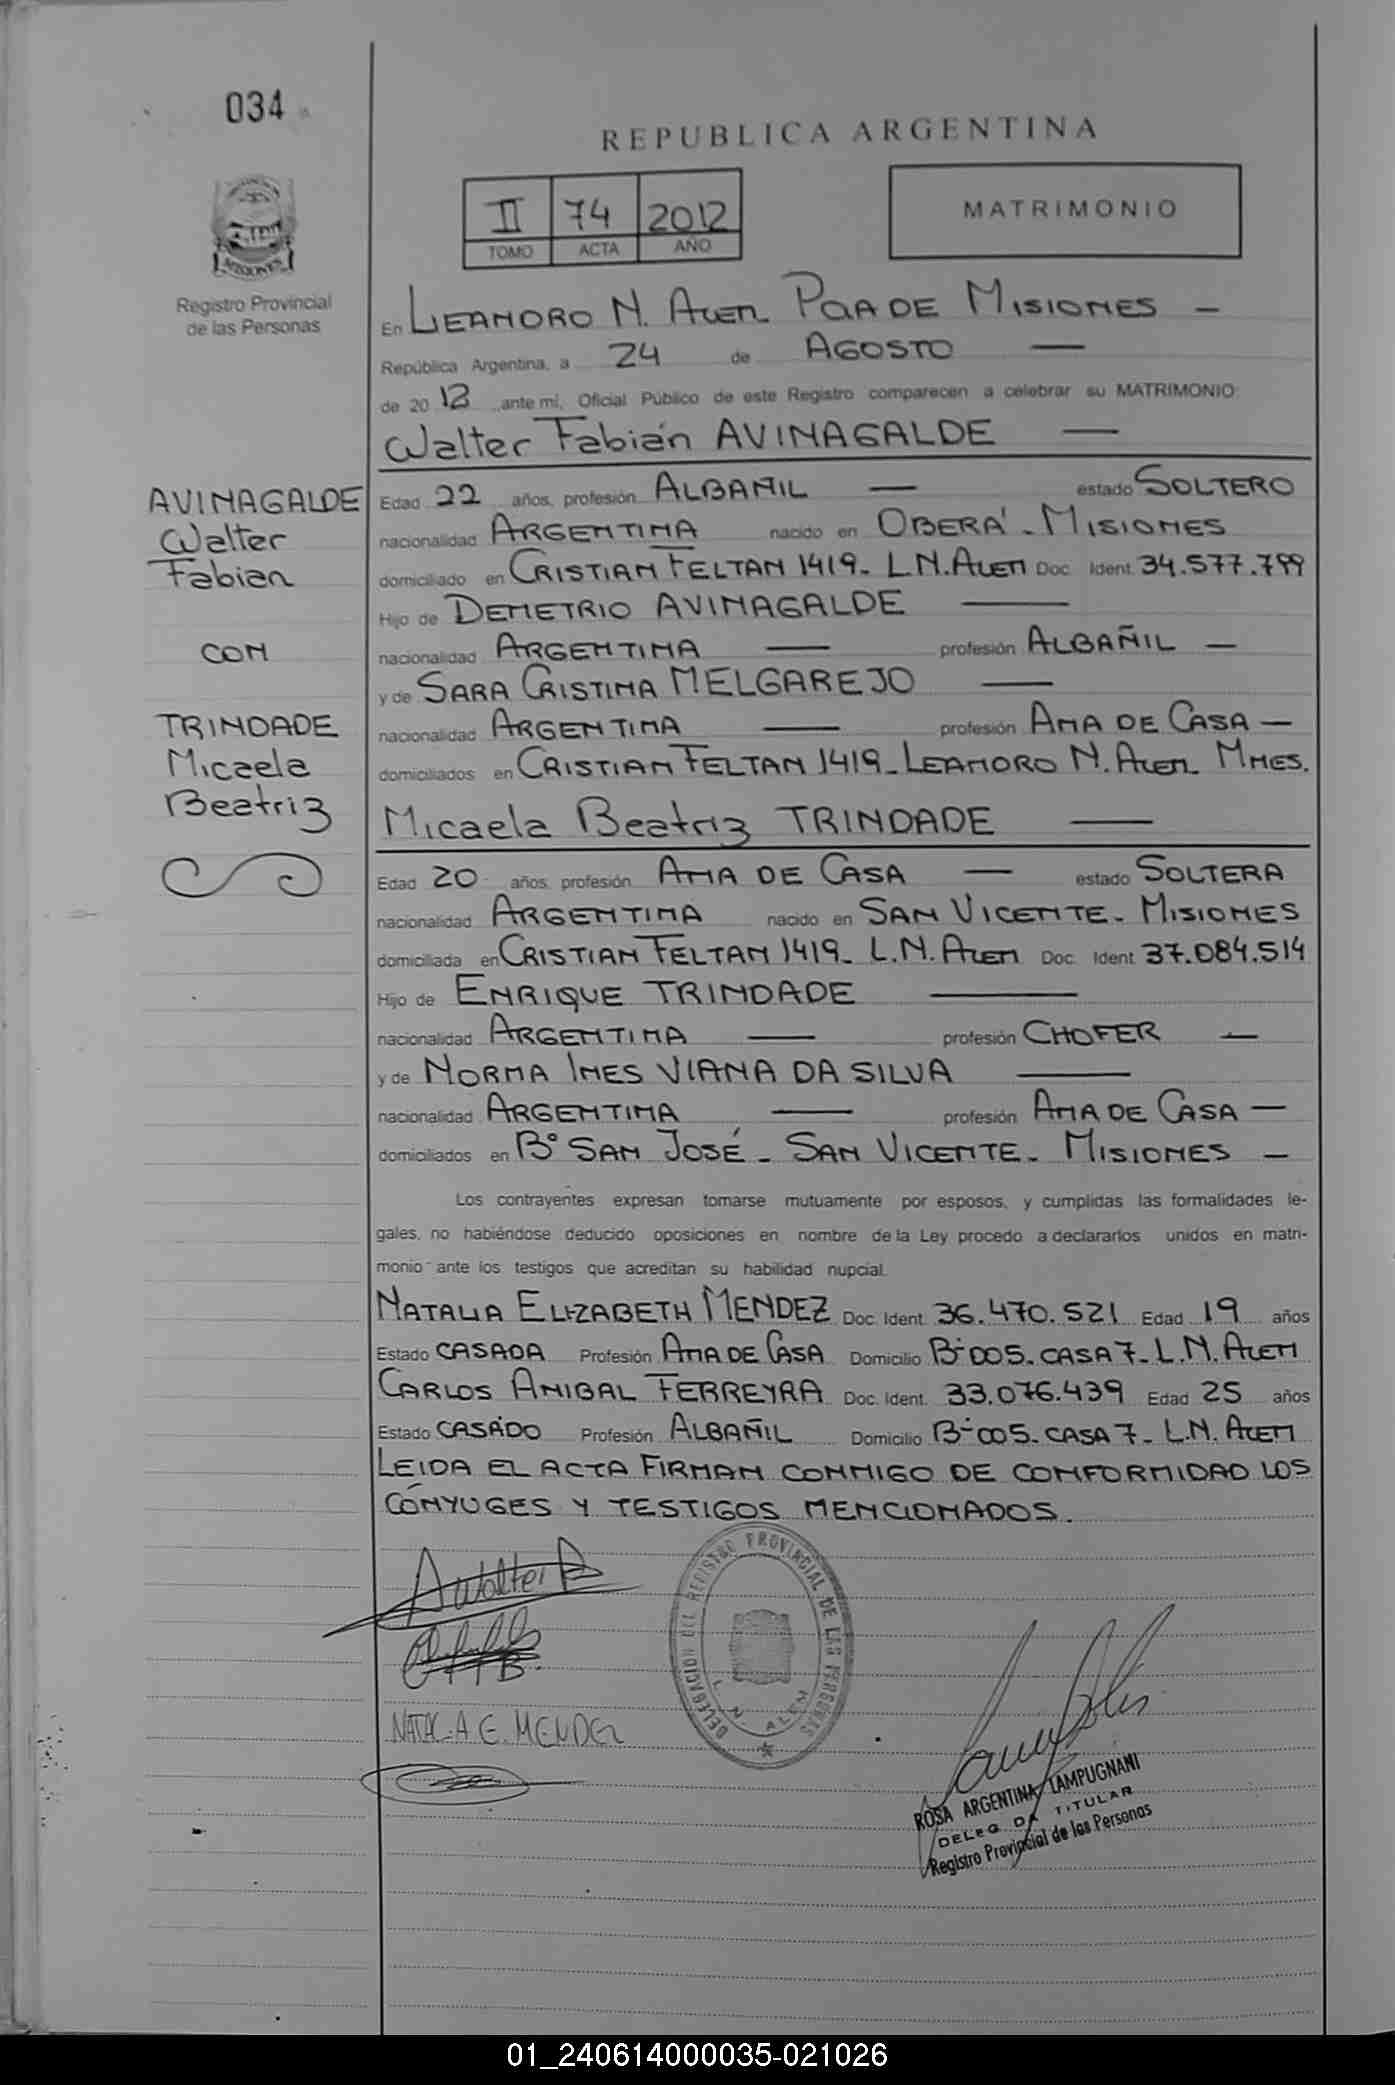 034
REPUBLICA ARGENTINA
II 74 2012
TOMO ACTA AÑO
MATRIMONIO
MISIONES
Registro Provincial
de las Personas
En LEANDRO N. ALEM PCIA DE MISIONES —
República Argentina, a 24 de AGOSTO —
de 2012 ante mi, Oficial Público de este Registro comparecen a celebrar su MATRIMONIO:
Walter Fabián AVINAGALDE —
AVINAGALDE
Walter
Fabian
CON
TRINDADE
Micaela
Beatriz
Edad 22 años, profesión ALBAÑIL — estado SOLTERO
nacionalidad ARGENTINA nacido en OBERÁ - MISIONES
domiciliado en CRISTIAN FELTAN 1419- L.N. ALEM Doc. Ident. 34.577.799
Hijo de DEMETRIO AVINAGALDE —
nacionalidad ARGENTINA — profesión ALBAÑIL —
y de SARA CRISTINA MELGAREJO —
nacionalidad ARGENTINA — profesión AMA DE CASA —
domiciliados en CRISTIAN FELTAN 1419- LEANDRO N. ALEM MNES.
Micaela Beatriz TRINDADE —
Edad 20 años, profesión AMA DE CASA — estado SOLTERA
nacionalidad ARGENTINA nacido en SAN VICENTE- MISIONES
domiciliada en CRISTIAN FELTAN 1419- L.N. ALEM Doc. Ident 37.084.514
Hijo de ENRIQUE TRINDADE —
nacionalidad ARGENTINA — profesión CHOFER —
y de NORMA INES VIANA DA SILVA —
nacionalidad ARGENTINA — profesión AMA DE CASA —
domiciliados en B° SAN JOSÉ - SAN VICENTE- MISIONES —
Los contrayentes expresan tomarse mutuamente por esposos, y cumplidas las formalidades le-
gales, no habiéndose deducido oposiciones en nombre de la Ley procedo a declararlos unidos en matri-
monio ante los testigos que acreditan su habilidad nupcial.
NATALIA ELIZABETH MENDEZ Doc. Ident. 36.470.521 Edad 19 años
Estado CASADA Profesión AMA DE CASA Domicilio B° 005. CASA 7- L.N. ALEM
CARLOS ANIBAL FERREYRA Doc. Ident. 33.076.439 Edad 25 años
Estado CASADO Profesión ALBAÑIL Domicilio B° 005. CASA 7- L.N. ALEM
LEIDA EL ACTA FIRMAN CONMIGO DE CONFORMIDAD LOS
CÓNYUGES Y TESTIGOS MENCIONADOS.
A Walter
NATALIA E. MENDEZ
DELEGACION DEL REGISTRO PROVINCIAL DE LAS PERSONAS
L. N. ALEM
ROSA ARGENTINA LAMPUGNANI
DELEGADA TITULAR
Registro Provincial de las Personas
01_240614000035-021026